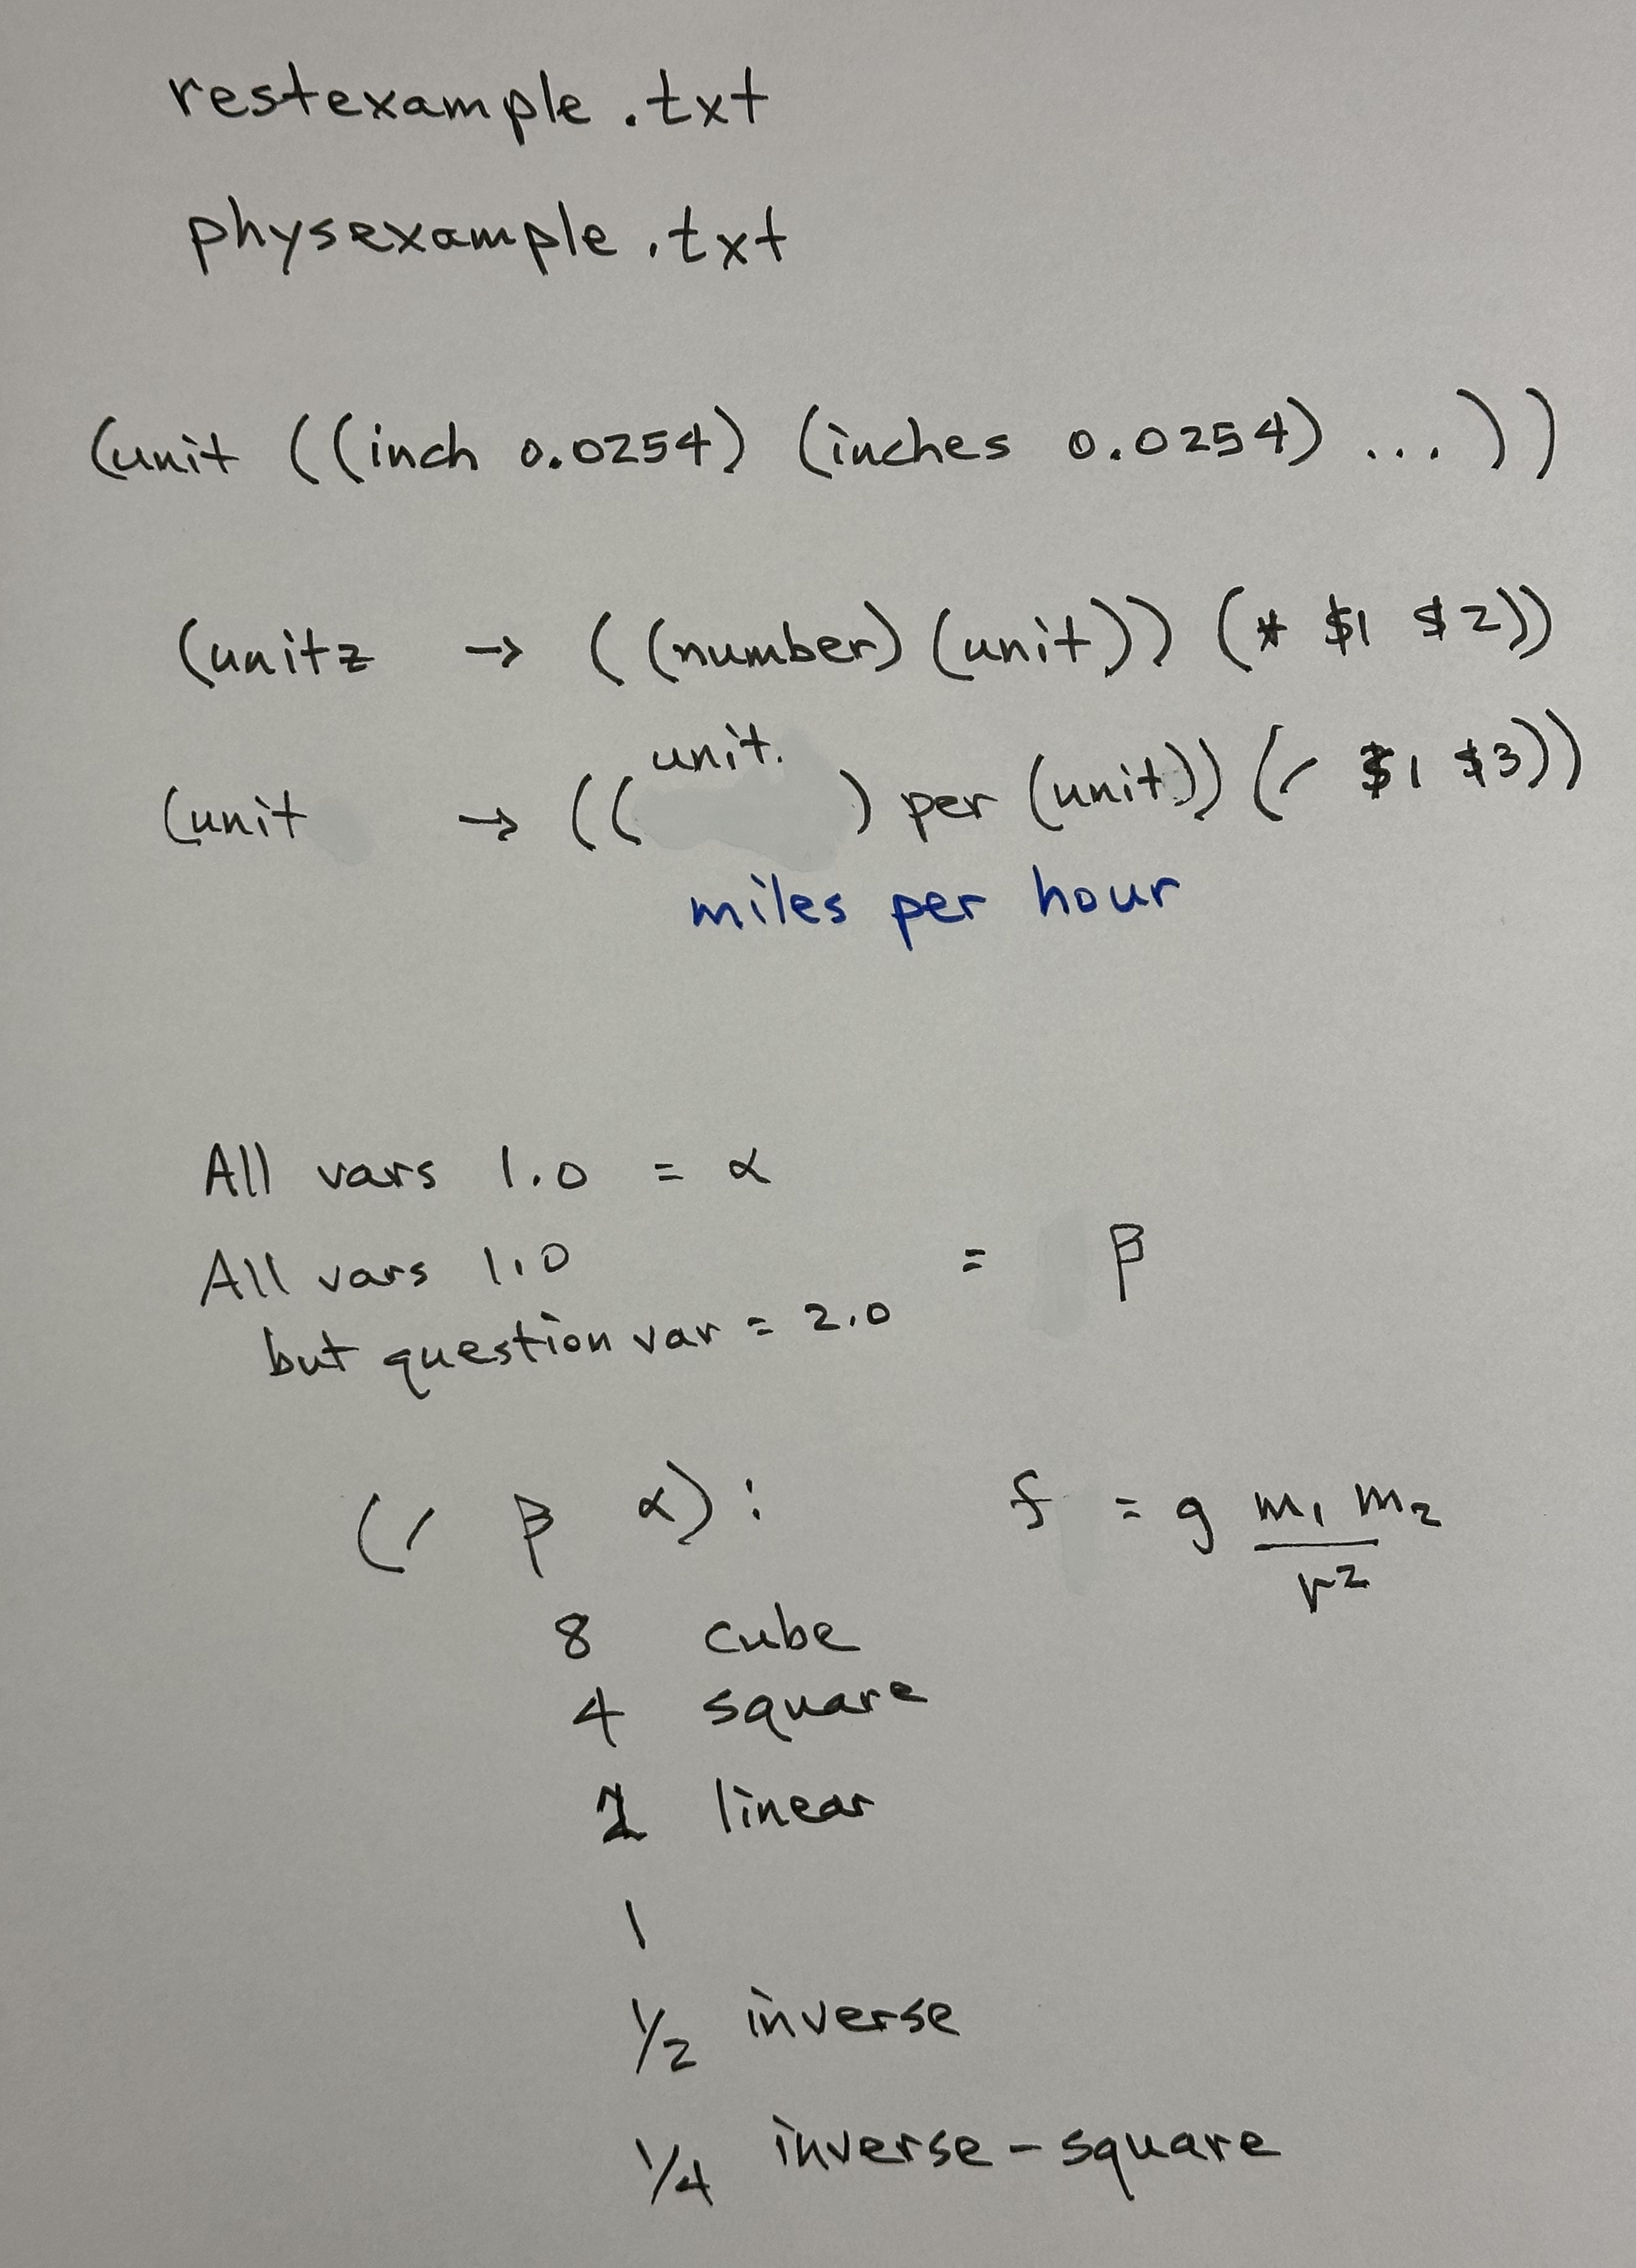 restexample.txt
physexample.txt
(unit ((inch 0.0254) (inches 0.0254) ... ))
(unitz → ((number)(unit)) (* $1 $2))
(unit → ((unit.) per (unit)) (/ $1 $3))
miles per hour
All vars 1.0 = α
All vars 1.0 = β
but question var = 2.0
(/ β α): f = g m₁ m₂ / r²
8 cube
4 square
2 linear
1
1/2 inverse
1/4 inverse-square